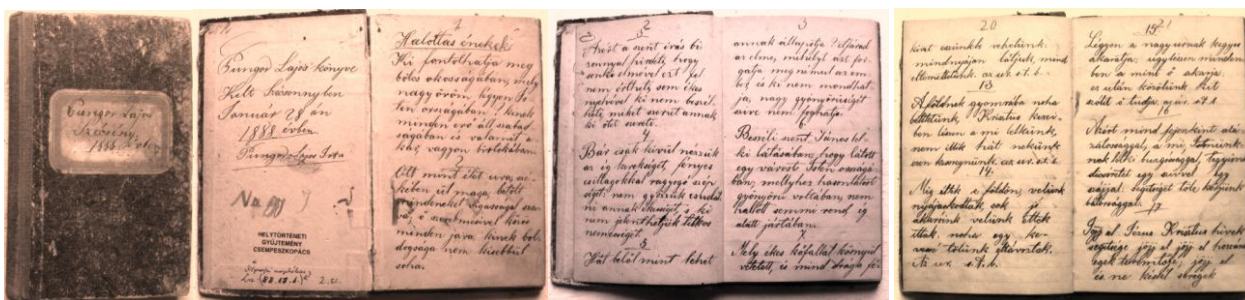 Pungor Lajos
Szecseny
1888 évben
Pungor Lajos könyve
Kelt
Január 28 án
1888 évben
Pungor Lajos Irta
No
HELYTÖRTÉNETI
GYŰJTEMÉNY
CSEMPESZKOPÁCS
1
Halottas énekek
Ki fontolhatja meg
bölcs okosságában, mely
nagy öröm légyen Is
ten országában, kinek
minden erő áll szabad
ságában és valami so
kas, vagyon birtokában.
2
Ott mint élet ura,
székiben ül maga, látott
mindeneket igazságos sza
va, ő szerelmével
minden java kinek bol
dogsága nem kisebbül
soha.
2
3
Azért a szent irás bi
zonnyal hirdeti, hogy
emberi elmével ezt fel
nem érheti, sem ékes
nyelvével ki nem beszél
heti miket szerzett annak
ki őtet szereti.
4
Bár csak kivül nézzük
az ég kerekségét, fényes
csillagokkal ragyogó szép
ségét, nem győzzük csudál
ni annak ékességét, s ki
nem jelenthetjük titkos
nemességét.
5
Hát belül mint lehet
3
annak állapotja? elfárad
az elme, mihelyt azt for
gatja meg némul az em
ber, és ki nem mondhat
ja, nagy gyönyörűségét
szive nem foghatja.
6
Beszéli szent János lel
ki látásában, hogy látott
egy várost Isten országá
ban, mellyhez hasonlatost
gyönyörű voltában, nem
hallott semmi rend ég
alatt jártában.
7
Mely ékes kőfallal környül
vétetett, és mind drága
20
kint
mindnyájan látjuk, mind
eltemettetünk. az ur. st. b.
13
A földnek gyomrába noha
tétettünk, Kristus kezei
ben lészen a mi lelkünk,
nem illik hát nekünk
azon kesergnünk az ur. st. b.
14
Mig éltek e földön, velünk
nyájaskodtak, sok jó
akaróink velünk ettek
ittak, noha egy ke
vessé tőlünk eltávoztak.
Az ur. st. b.
21
15
Légyen a nagy urnak kegyes
akaratja, ugytessen minden
ben a mint ő akarja.
ez után közölünk kit
szólit ő tudja.
16
Azért mind fejenkint alá
zatossággal, a mi Istenünk
nek lelki buzgósággal, tegyünk
dicséretet egy szivvel egy
szájjal. segitségét tőle kérjünk
bátorsággal.
17
Jőjj el Jézus Kristus hivek
segitsége jőjj el jőjj el
egek teremtője, jőjj el
és ne késsél